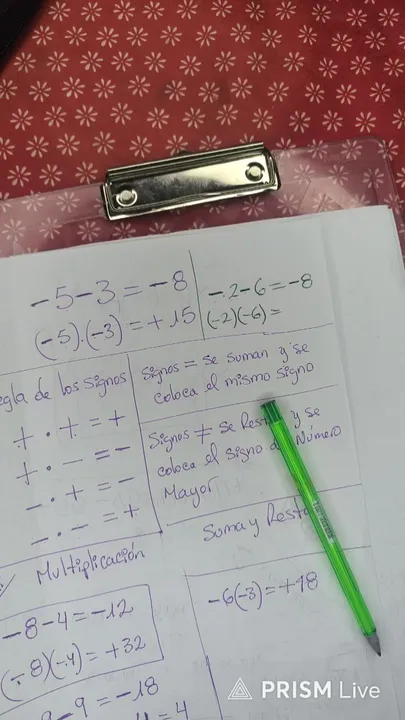 -5-3=-8
(-5).(-3)=+15
-2-6=-8
(-2)(-6)=
de los signos
+ . + = +
+ . - = -
- . + = -
- . - = +
Multiplicación
Signos = se suman y se
coloca el mismo signo
Signos ≠ se y se
coloca el signo Número
Mayor
Suma y
-6(-3)=+18
-8-4=-12
(-8)(-4)=+32
-9=-18
PRISM Live